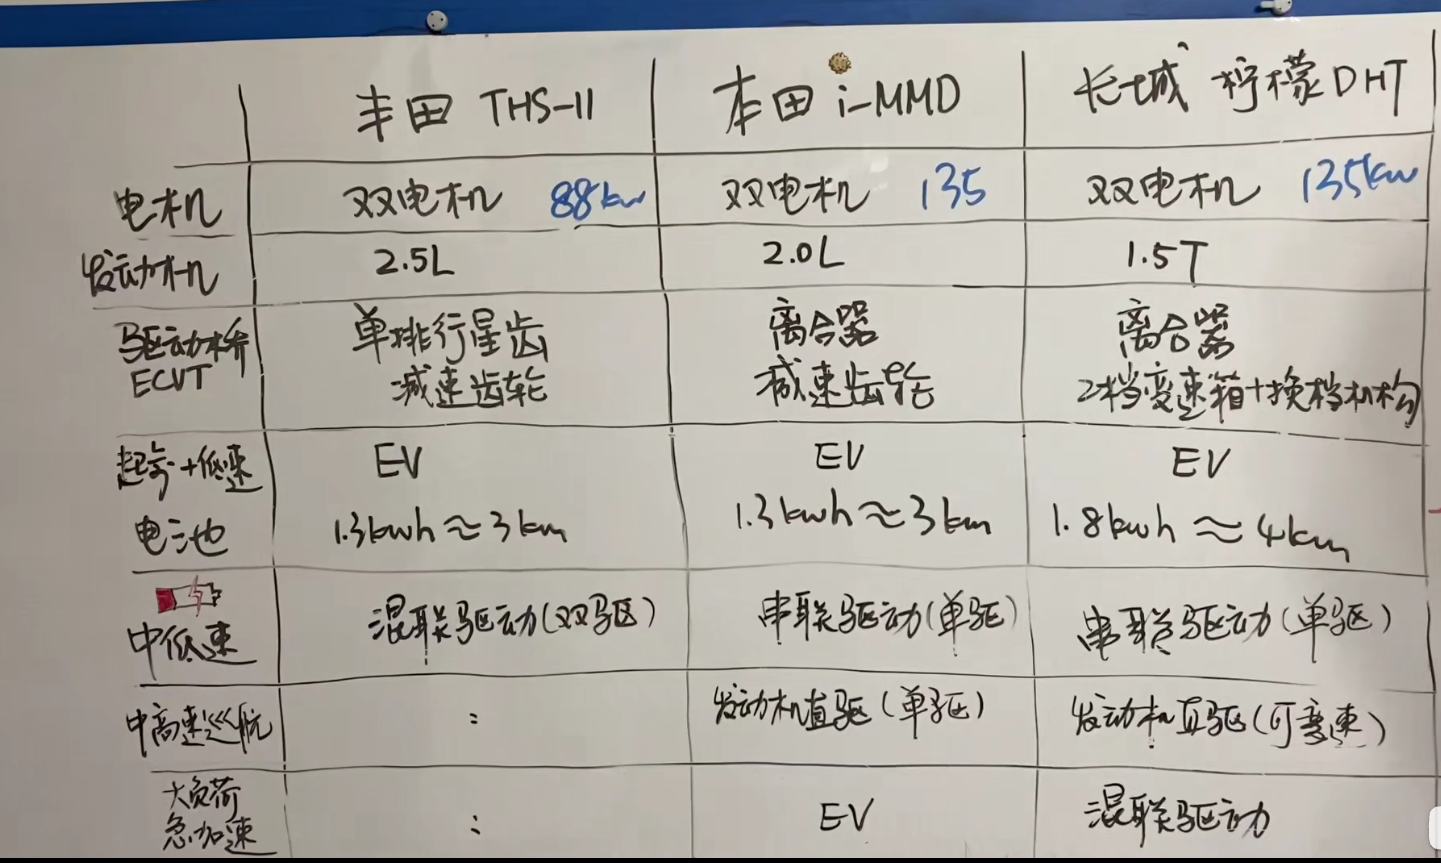 丰田 THS-II 本田 i-MMD 长城 柠檬DHT
电机 双电机 88kw 双电机 135 双电机 135kw
发动机 2.5L 2.0L 1.5T
驱动桥 单排行星齿 离合器 离合器
ECVT 减速齿轮 减速齿轮 2档变速箱+换档机构
起步+低速 EV EV EV
电池 1.3kwh≈3km 1.3kwh≈3km 1.8kwh≈4km
中低速 混联驱动(双驱) 串联驱动(单驱) 串联驱动(单驱)
中高速巡航 : 发动机直驱(单驱) 发动机直驱(可变速)
大负荷
急加速 : EV 混联驱动